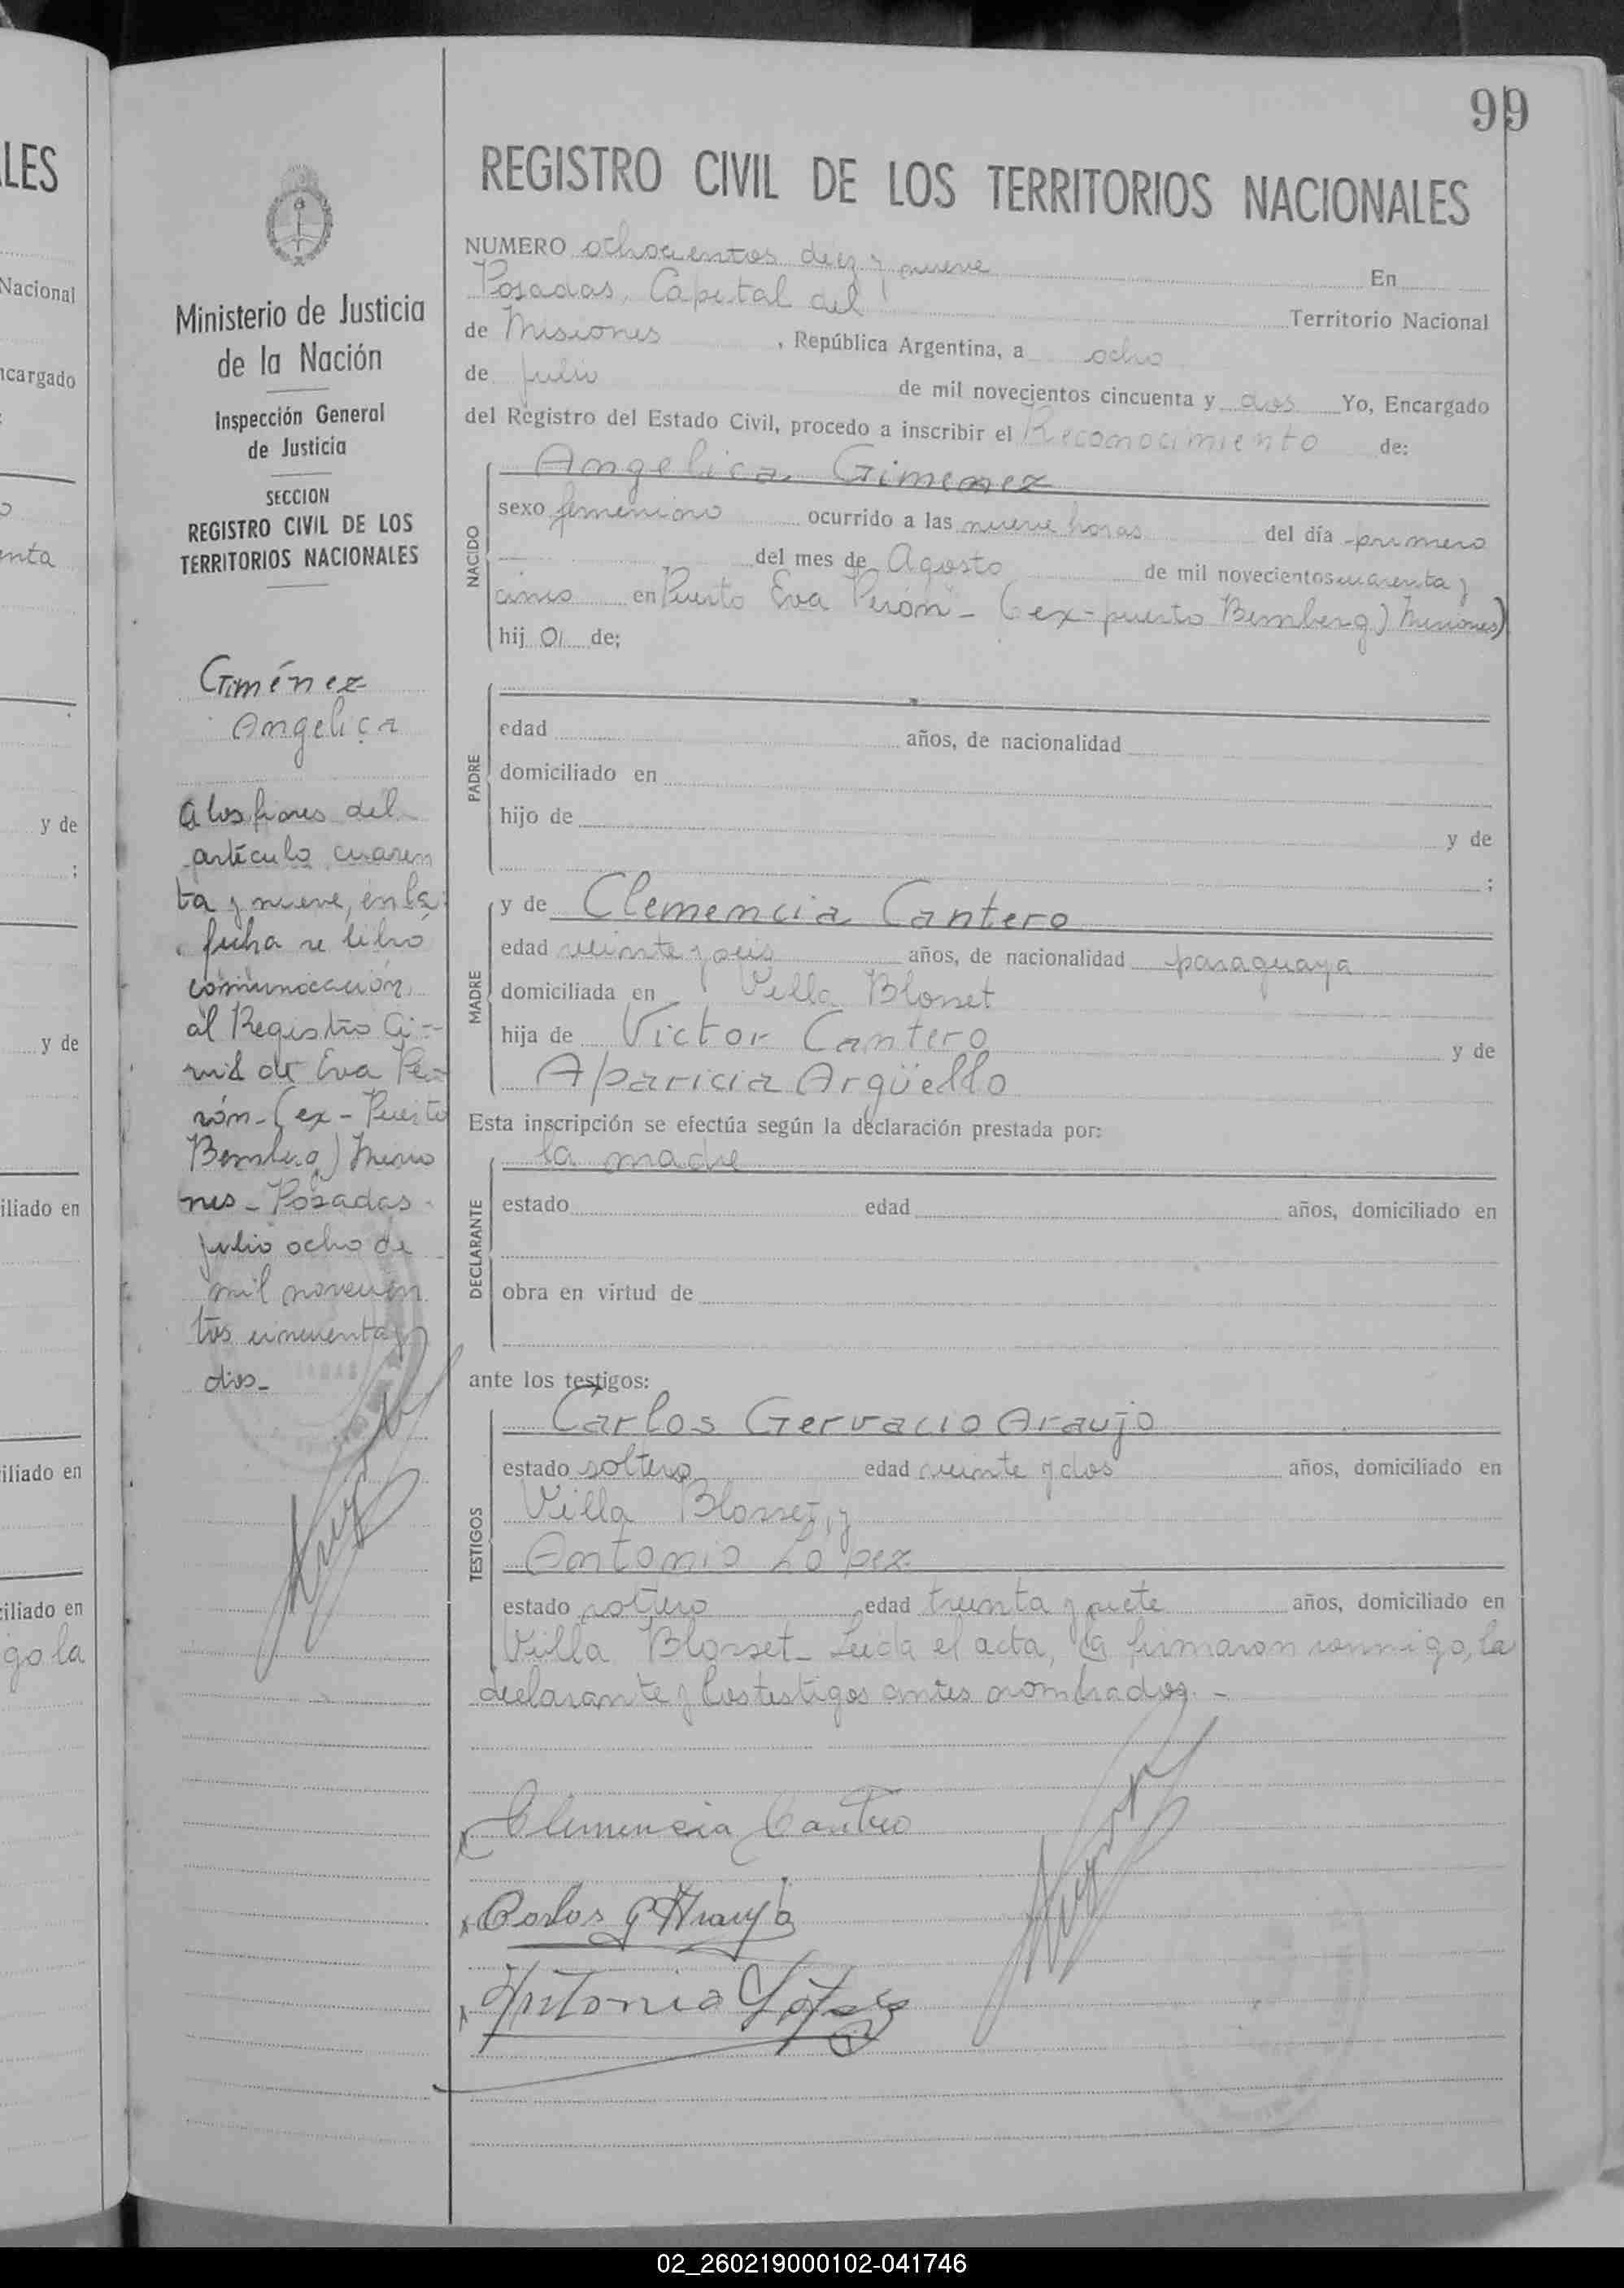 99
REGISTRO CIVIL DE LOS TERRITORIOS NACIONALES
NUMERO ochocientos diez y nueve En
Posadas, Capital del Territorio Nacional
de Misiones, República Argentina, a ocho
de julio de mil novecientos cincuenta y dos Yo, Encargado
del Registro del Estado Civil, procedo a inscribir el Reconocimiento de:
NACIDO
Angelica Gimenez
sexo femenino ocurrido a las nueve horas del día primero
del mes de Agosto de mil novecientos cuarenta y
cinco en Puerto Eva Perón - (ex-puerto Bemberg) Misiones)
hij a de;
PADRE
edad años, de nacionalidad
domiciliado en
hijo de y de
;
MADRE
y de Clemencia Cantero
edad veinte y seis años, de nacionalidad paraguaya
domiciliada en Villa Blosset
hija de Victor Cantero y de
Aparicia Argüello
Esta inscripción se efectúa según la declaración prestada por:
DECLARANTE
la madre
estado edad años, domiciliado en
obra en virtud de
ante los testigos:
TESTIGOS
Carlos Gervacio Araujo
estado soltero edad veinte y dos años, domiciliado en
Villa Blosset, y
Antonio Lopez
estado soltero edad treinta y siete años, domiciliado en
Villa Blosset - Leida el acta, la firmaron conmigo, la
declarante y los testigos antes nombrados. -
Clemencia Cantero
Carlos G Araujo
Antonio López
Ministerio de Justicia
de la Nación
Inspección General
de Justicia
SECCION
REGISTRO CIVIL DE LOS
TERRITORIOS NACIONALES
Giménez
Angelica
A los fines del
artículo cuaren
ta y nueve, en la
fecha se libró
comunicación
al Registro Ci-
vil de Eva Pe-
rón - (ex - Puerto
Bemberg) Misio
nes - Posadas
julio ocho de
mil novecien
tos cincuenta y
dos -
LES
Nacional
ncargado
enta
y de
;
y de
iliado en
iliado en
ciliado en
go la
02_260219000102-041746